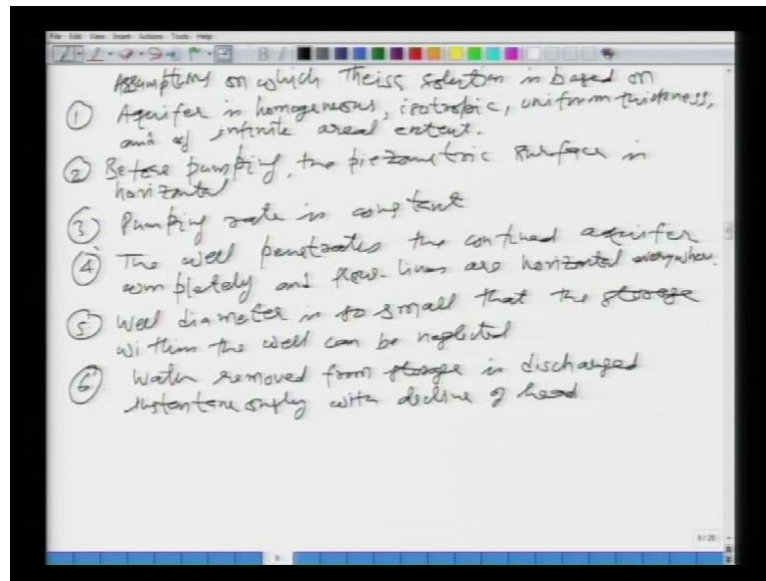 File Edit View Insert Actions Tools Help
Assumptions on which Theiss solution is based on
① Aquifer is homogeneous, isotropic, uniform thickness,
and of infinite areal extent.
② Before pumping, the piezometric surface is
horizontal
③ Pumping rate is constant
④ The well penetrates the confined aquifer
completely and flow-lines are horizontal everywhere.
⑤ Well diameter is so small that the storage
within the well can be neglected
⑥ Water removed from storage is discharged
instantaneously with decline of head